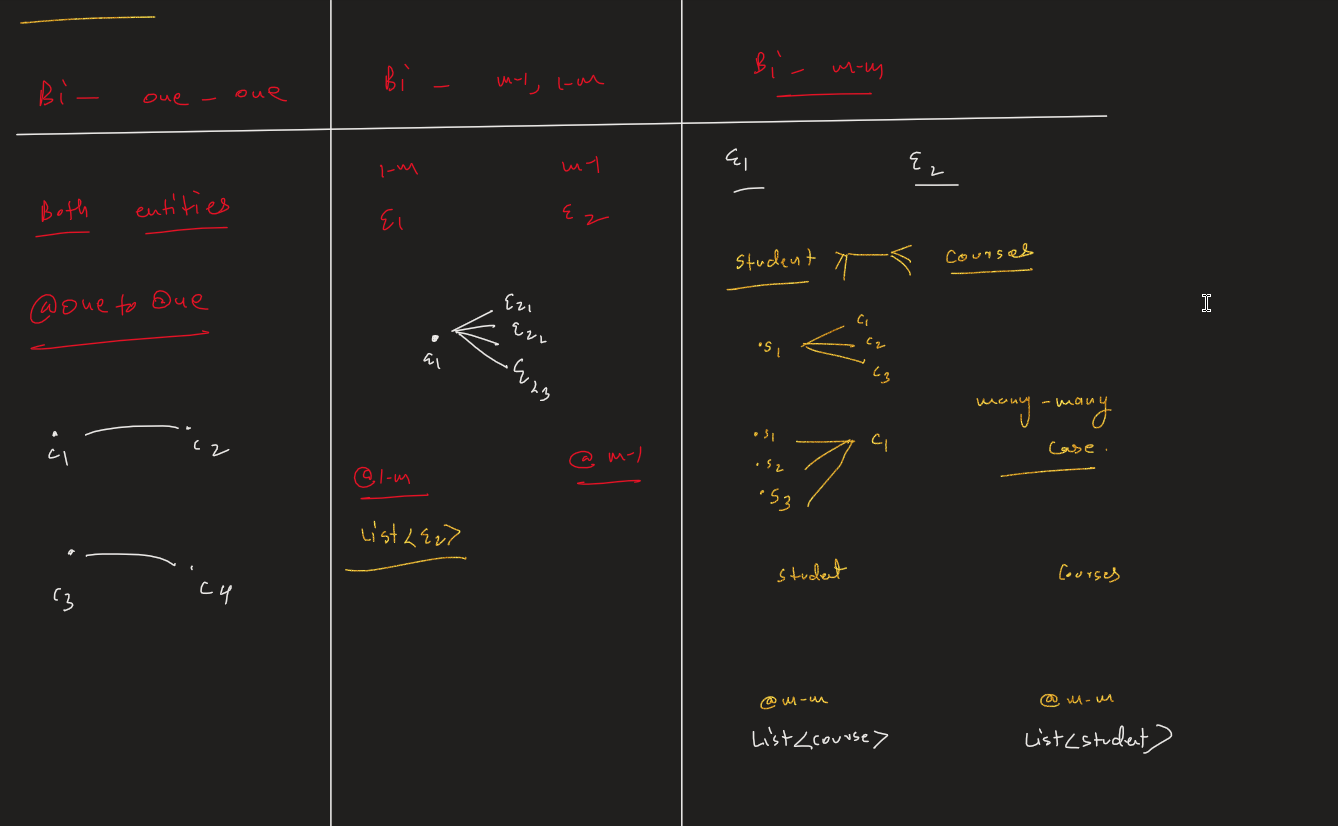 Bi - one - one
Both entities
@One to One
c1 c2
c3 c4
Bi - m-1, 1-m
1-m m-1
E1 E2
E21
E22
E1
E23
@1-m @ m-1
List<E2>
Bi - m-m
E1 E2
Student Courses
C1
S1 C2
C3
many-many
case.
S1 C1
S2
S3
Student Courses
@m-m @m-m
List<course> List<student>